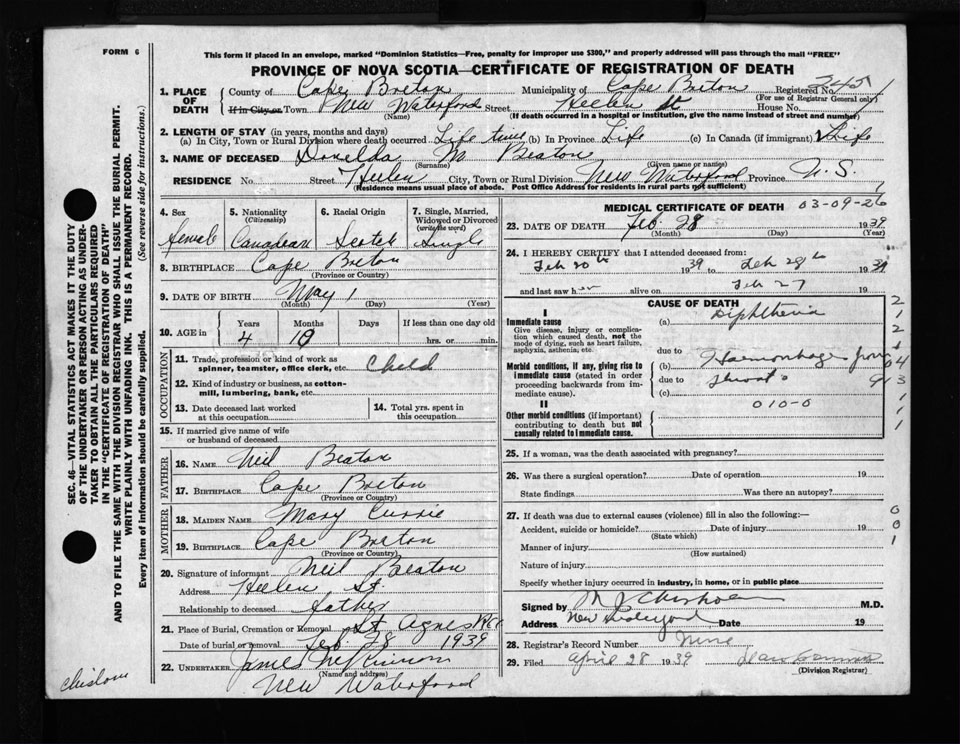 FORM 6
This form if placed in an envelope, marked "Dominion Statistics—Free, penalty for improper use $300," and properly addressed will pass through the mail "FREE"
PROVINCE OF NOVA SCOTIA—CERTIFICATE OF REGISTRATION OF DEATH
1. PLACE OF DEATH County of Cape Breton Municipality of Cape Breton Registered No. 345
(For use of Registrar General only)
If in City or Town New Waterford Street Heelen St House No.
(Name) (If death occurred in a hospital or institution, give the name instead of street and number)
2. LENGTH OF STAY (in years, months and days)
(a) In City, Town or Rural Division where death occurred Life time (b) In Province Life (c) In Canada (if immigrant) Life
3. NAME OF DECEASED Donelda M Beaton
(Surname) (Given name or names)
RESIDENCE No. Street Heelen City, Town or Rural Division New Waterford Province N.S.
(Residence means usual place of abode. Post Office Address for residents in rural parts not sufficient)
4. Sex 5. Nationality (Citizenship) 6. Racial Origin 7. Single, Married, Widowed or Divorced (write the word)
female Canadian Scotch Single
8. BIRTHPLACE Cape Breton
(Province or Country)
9. DATE OF BIRTH May 1
(Month) (Day) (Year)
10. AGE in Years Months Days If less than one day old
4 10 hrs. or min.
OCCUPATION
11. Trade, profession or kind of work as spinner, teamster, office clerk, etc. Child
12. Kind of industry or business, as cotton-mill, lumbering, bank, etc.
13. Date deceased last worked at this occupation 14. Total yrs. spent in this occupation
15. If married give name of wife or husband of deceased
FATHER
16. NAME Neil Beaton
17. BIRTHPLACE Cape Breton
(Province or Country)
MOTHER
18. MAIDEN NAME Mary Currie
19. BIRTHPLACE Cape Breton
(Province or Country)
20. Signature of informant Neil Beaton
Address Heelen St.
Relationship to deceased father
21. Place of Burial, Cremation or Removal St Agnes
Date of burial or removal Feb. 28 1939
22. UNDERTAKER James McKinnon
(Name and address)
New Waterford
MEDICAL CERTIFICATE OF DEATH 03-09-26
23. DATE OF DEATH Feb 28 1939
(Month) (Day) (Year)
24. I HEREBY CERTIFY that I attended deceased from:
Feb 20th 1939 to Feb 28th 1939
and last saw her alive on Feb 27 19
CAUSE OF DEATH
I
Immediate cause (a) Diphtheria
Give disease, injury or complication which caused death, not the mode of dying, such as heart failure, asphyxia, asthenia, etc.
due to
Morbid conditions, if any, giving rise to immediate cause (stated in order proceeding backwards from immediate cause). (b) Haemorrhage from
due to throat
(c)
II
010-0
Other morbid conditions (if important) contributing to death but not causally related to immediate cause.
25. If a woman, was the death associated with pregnancy?
26. Was there a surgical operation? Date of operation 19
State findings Was there an autopsy?
27. If death was due to external causes (violence) fill in also the following:—
Accident, suicide or homicide? Date of injury 19
(State which)
Manner of injury
(How sustained)
Nature of injury
Specify whether injury occurred in industry, in home, or in public place
Signed by M J Chisholm M.D.
Address New Waterford Date 19
28. Registrar's Record Number Nine
29. Filed April 28 1939
(Division Registrar)
SEC. 46—VITAL STATISTICS ACT MAKES IT THE DUTY
OF THE UNDERTAKER OR PERSON ACTING AS UNDER-
TAKER TO OBTAIN ALL THE PARTICULARS REQUIRED
IN THE "CERTIFICATE OF REGISTRATION OF DEATH"
AND TO FILE THE SAME WITH THE DIVISION REGISTRAR WHO SHALL ISSUE THE BURIAL PERMIT.
WRITE PLAINLY WITH UNFADING INK. THIS IS A PERMANENT RECORD.
Every item of information should be carefully supplied. (See reverse side for instructions.)
Chislom